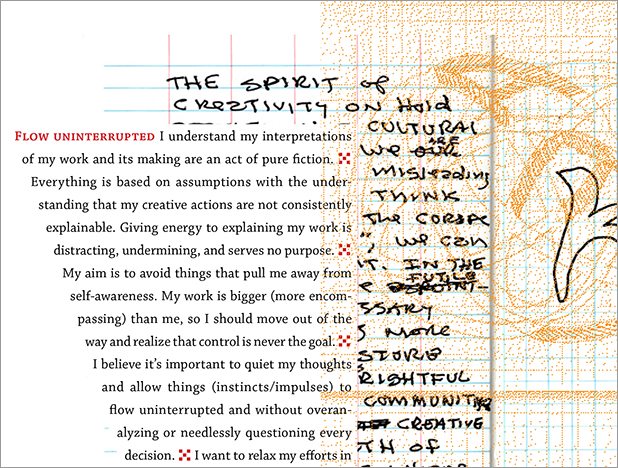 THE SPIRIT of
CREATIVITY ON Hold
FLOW UNINTERRUPTED I understand my interpretations
of my work and its making are an act of pure fiction.
Everything is based on assumptions with the under-
standing that my creative actions are not consistently
explainable. Giving energy to explaining my work is
distracting, undermining, and serves no purpose.
My aim is to avoid things that pull me away from
self-awareness. My work is bigger (more encom-
passing) than me, so I should move out of the
way and realize that control is never the goal.
I believe it’s important to quiet my thoughts
and allow things (instincts/impulses) to
flow uninterrupted and without overan-
alyzing or needlessly questioning every
decision. I want to relax my efforts in
CULTURAL
ARE
We our
misleading
THINK
THE CORPSE
", we can
IT. IN THE
FUTILE
SSARY
S MORE
STORE
RIGHTFUL
COMMUNITY
CREATIVE
TH OF